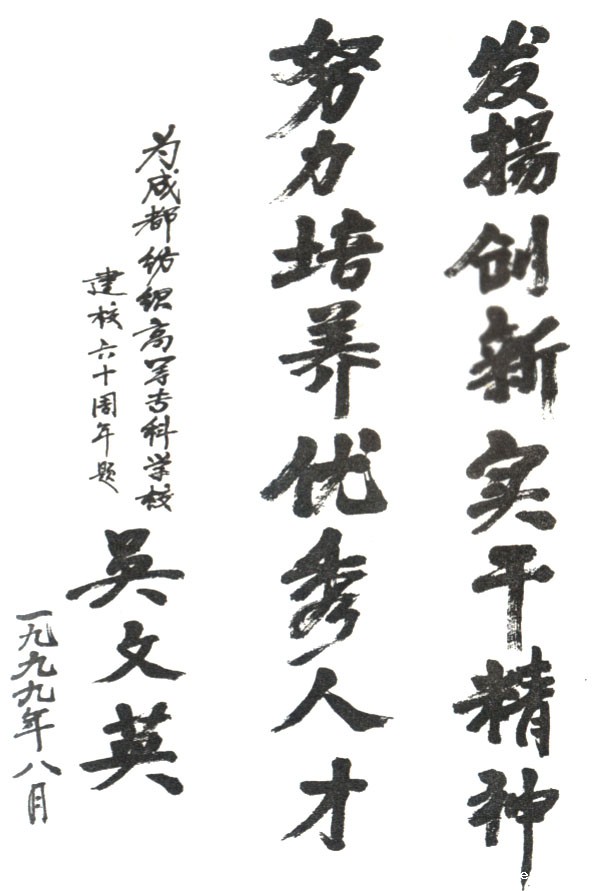 发揚创新实干精神
努力培养优秀人才
为成都纺织高等专科学校
建校六十周年题
吴文英
一九九九年八月